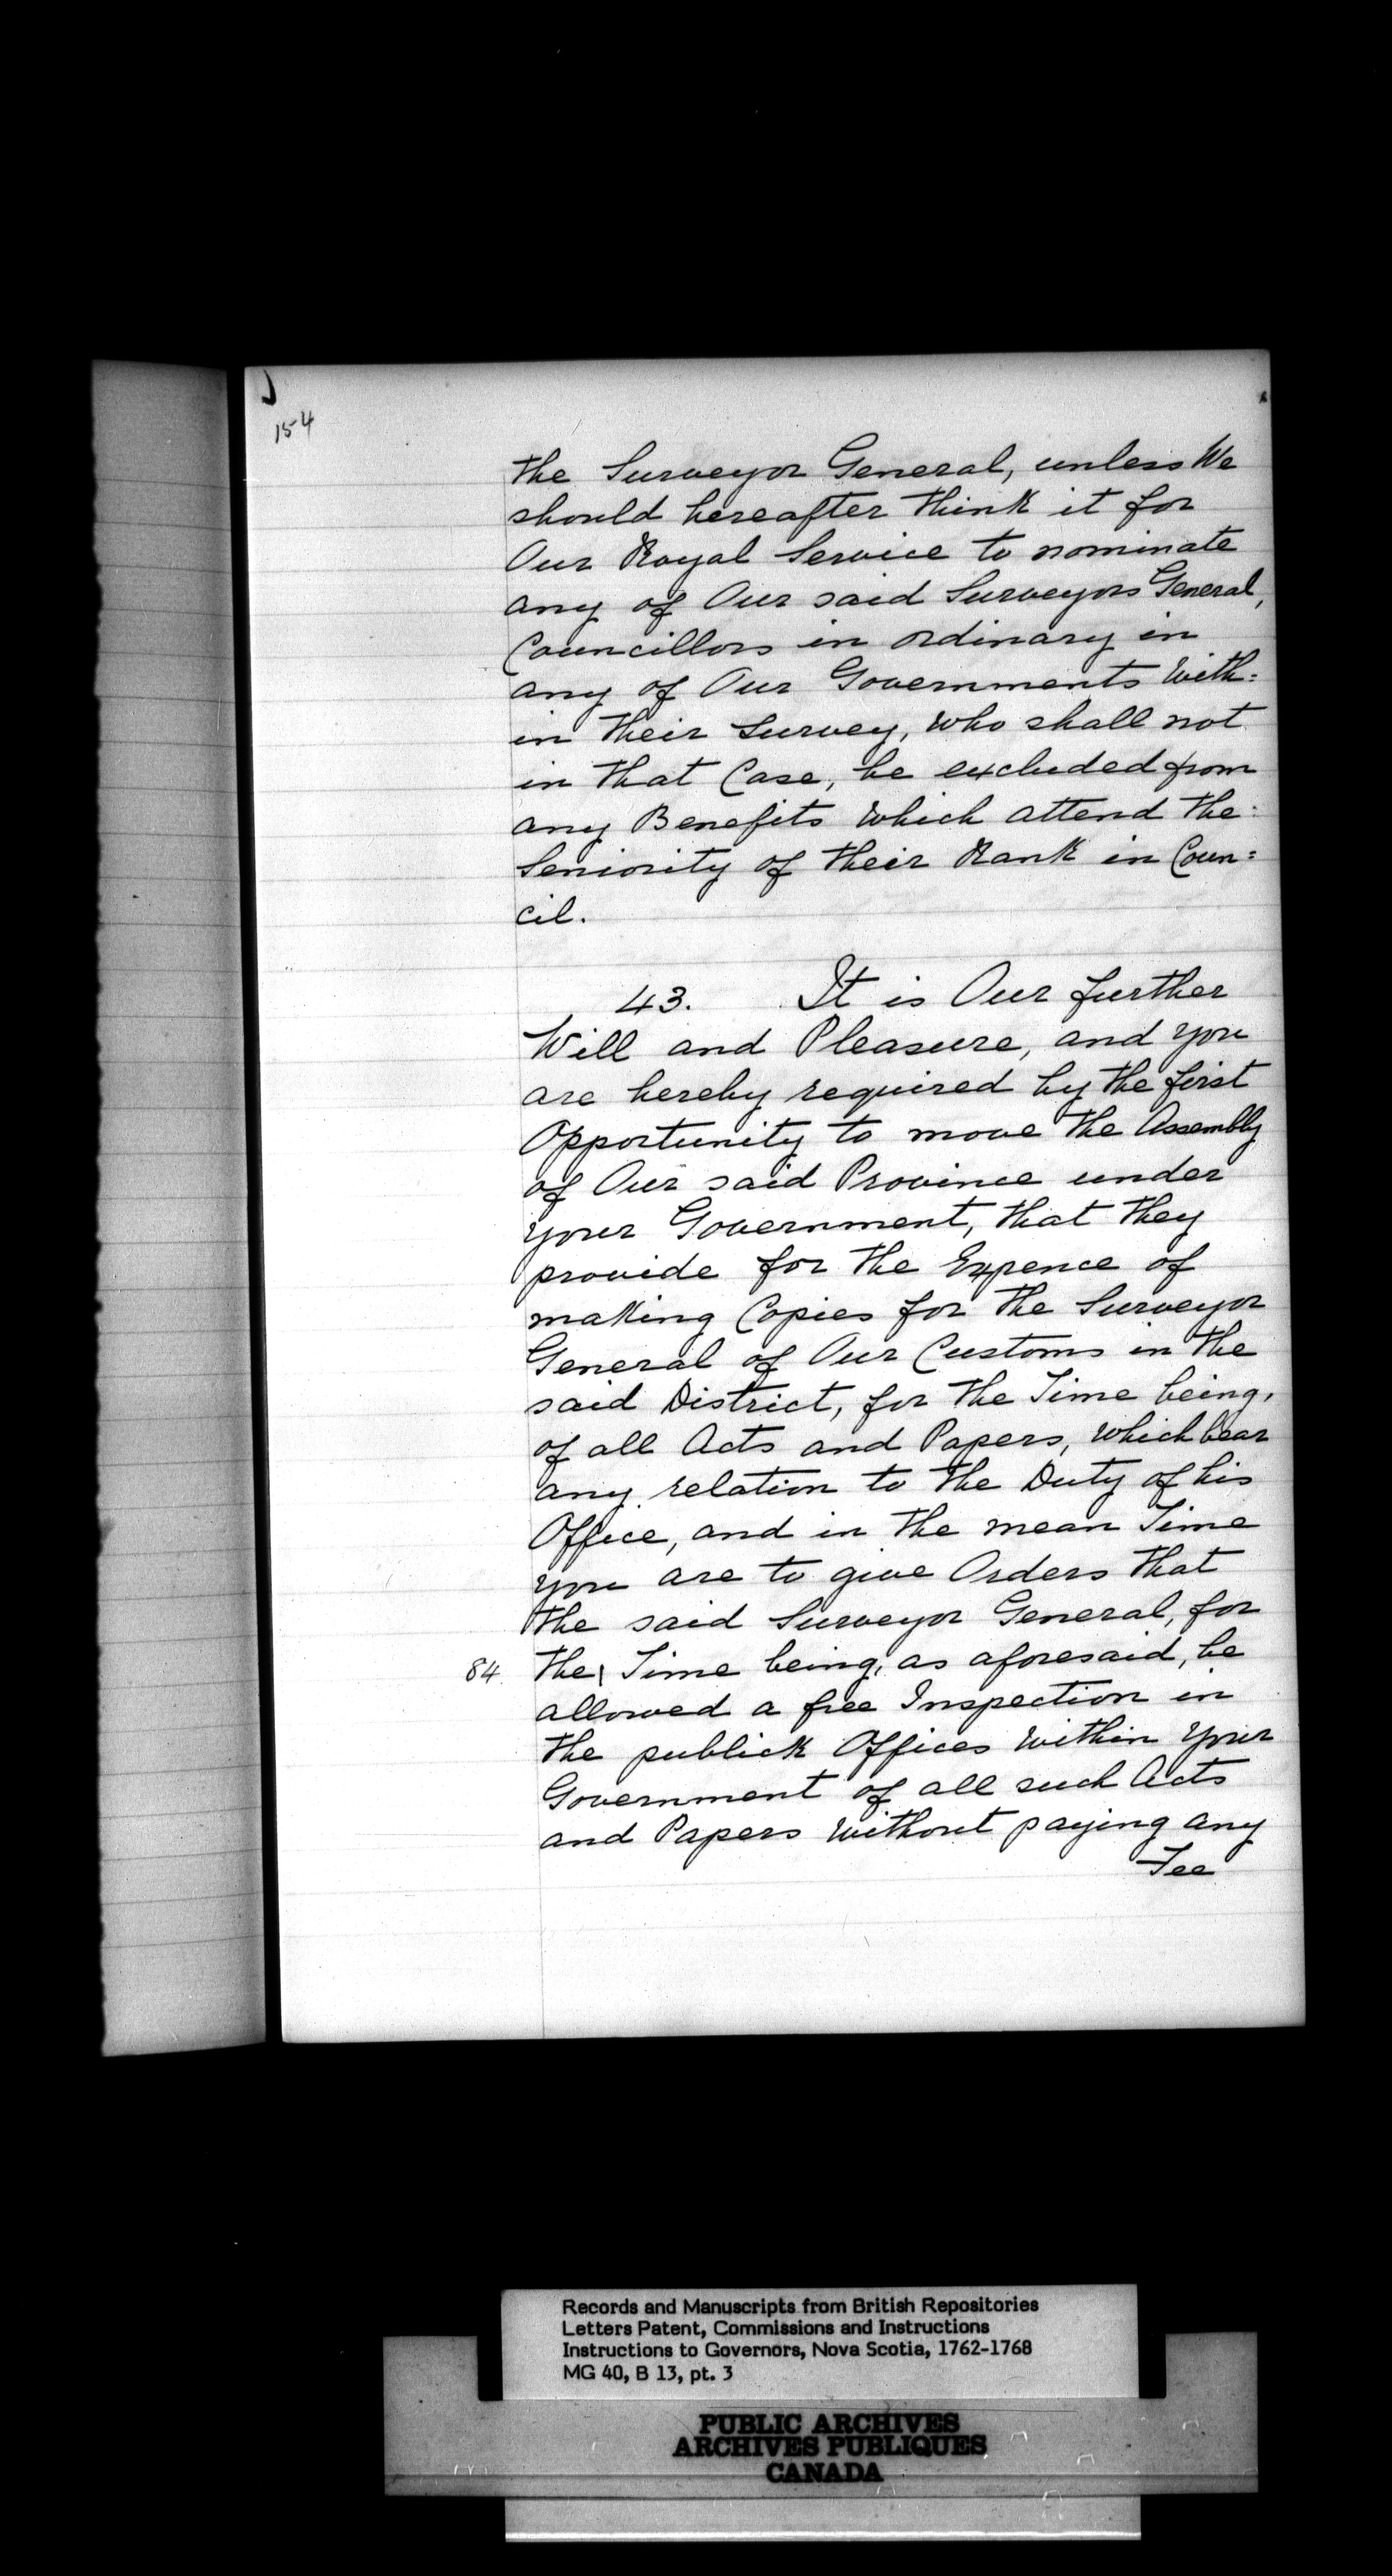 154
the Surveyor General, unless We
should hereafter think it for
Our Royal Service to nominate
any of Our said Surveyors General,
Councillors in ordinary in
any of Our Governments with=
in their Survey, who shall not
in that Case, be excluded from
any Benefits which attend the
Seniority of their Rank in Coun=
cil.
43. It is Our further
Will and Pleasure, and you
are hereby required by the first
Opportunity to move the Assembly
of Our said Province under
your Government, that they
provide for the Expence of
making Copies for the Surveyor
General of Our Customs in the
said District, for the Time being,
of all Acts and Papers, which bear
any relation to the Duty of his
Office, and in the mean Time
you are to give Orders that
the said Surveyor General, for
84. the| Time being, as aforesaid, be
allowed a free Inspection in
the publick Offices within your
Government of all such Acts
and Papers without paying any
Fee
Records and Manuscripts from British Repositories
Letters Patent, Commissions and Instructions
Instructions to Governors, Nova Scotia, 1762-1768
MG 40, B 13, pt. 3
PUBLIC ARCHIVES
ARCHIVES PUBLIQUES
CANADA